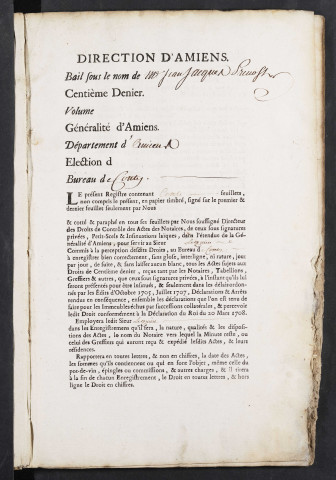 DIRECTION D'AMIENS.
Bail sous le nom de Me Jean Jacques Prevost
Centième Denier.
Volume
Généralité d'Amiens.
Département d' Amiens
Election d
Bureau de Conty
LE présent Registre contenant feuillets,
non compris le présent, en papier timbré, signé sur le premier &
dernier feuillet seulement par Nous
& cotté & paraphé en tous ses feuillets par Nous soussigné Directeur
des Droits de Contrôle des Actes des Notaires, de ceux sous signatures
privées, Petit-Scels & Insinuations laïques, dans l'étendue de la Gé-
néralité d'Amiens, pour servir au Sieur
Commis à la perception desdits Droits, au Bureau d
à enregistrer bien correctement, sans glose, interligne, ni rature, jour
par jour, de suite, & sans laisser aucun blanc, tous les Actes sujets aux
Droits de Centième denier, reçus tant par les Notaires, Tabellions,
Greffiers & autres, que ceux sous signatures privées, à l'instant qu'ils lui
seront présentés pour être insinués, & seulement dans les déboursdon-
nés par les Edits d'Octobre 1705, Juillet 1707, Déclarations & Arrêts
rendus en conséquence, ensemble les déclarations que l'on est tenu de
faire pour les Immeubles échus par successions collatérales, & percevoir
ledit Droit conformément à la Déclaration du Roi du 20 Mars 1708.
Employera ledit Sieur
dans les Enregistremens qu'il fera, la nature, qualités, & les disposi-
tions des Actes, le nom du Notaire vers lequel la Minute reste, ou
celui des Greffiers qui auront reçu & expédié lesdits Actes, & leurs
résidences.
Rapportera en toutes lettres, & non en chiffres, la date des Actes,
les sommes qu'ils contiennent ou qui en font l'objet, même celle du
pot-de-vin, épingles ou commissions, & autres charges, & il tirera
à la fin de chacun Enregistrement, le Droit en toutes lettres, & hors
ligne le Droit en chiffres.